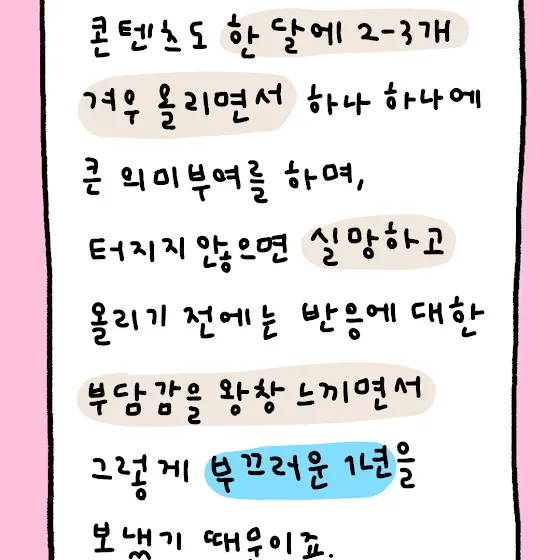 콘텐츠도 한 달에 2-3개
겨우 올리면서 하나 하나에
큰 의미부여를 하며,
터지지 않으면 실망하고
올리기 전에는 반응에 대한
부담감을 왕창 느끼면서
그렇게 부끄러운 1년을
보냈기 때문이죠.